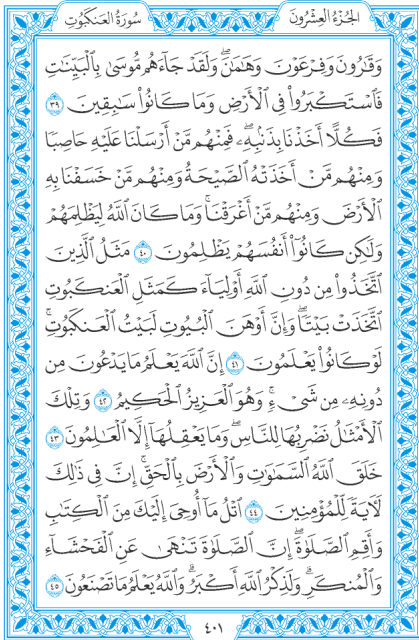 الجُزْءُ العِشْرُونَ
سُورَةُ العَنكَبُوتِ
وَقَٰرُونَ وَفِرْعَوْنَ وَهَٰمَٰنَۖ وَلَقَدْ جَآءَهُم مُّوسَىٰ بِالْبَيِّنَٰتِ
فَاسْتَكْبَرُوا۟ فِي الْأَرْضِ وَمَا كَانُوا۟ سَٰبِقِينَ ٣٩
فَكُلًّا أَخَذْنَا بِذَنۢبِهِۦۖ فَمِنْهُم مَّنْ أَرْسَلْنَا عَلَيْهِ حَاصِبًا
وَمِنْهُم مَّنْ أَخَذَتْهُ الصَّيْحَةُ وَمِنْهُم مَّنْ خَسَفْنَا بِهِ
الْأَرْضَ وَمِنْهُم مَّنْ أَغْرَقْنَاۚ وَمَا كَانَ اللَّهُ لِيَظْلِمَهُمْ
وَلَٰكِن كَانُوٓا۟ أَنفُسَهُمْ يَظْلِمُونَ ٤٠ مَثَلُ الَّذِينَ
اتَّخَذُوا۟ مِن دُونِ اللَّهِ أَوْلِيَآءَ كَمَثَلِ الْعَنكَبُوتِ
اتَّخَذَتْ بَيْتًاۖ وَإِنَّ أَوْهَنَ الْبُيُوتِ لَبَيْتُ الْعَنكَبُوتِۚ
لَوْ كَانُوا۟ يَعْلَمُونَ ٤١ إِنَّ اللَّهَ يَعْلَمُ مَا يَدْعُونَ مِن
دُونِهِۦ مِن شَيْءٍۚ وَهُوَ الْعَزِيزُ الْحَكِيمُ ٤٢ وَتِلْكَ
الْأَمْثَٰلُ نَضْرِبُهَا لِلنَّاسِۖ وَمَا يَعْقِلُهَآ إِلَّا الْعَٰلِمُونَ ٤٣
خَلَقَ اللَّهُ السَّمَٰوَٰتِ وَالْأَرْضَ بِالْحَقِّۚ إِنَّ فِي ذَٰلِكَ
لَءَايَةً لِّلْمُؤْمِنِينَ ٤٤ اتْلُ مَآ أُوحِيَ إِلَيْكَ مِنَ الْكِتَٰبِ
وَأَقِمِ الصَّلَوٰةَۖ إِنَّ الصَّلَوٰةَ تَنْهَىٰ عَنِ الْفَحْشَآءِ
وَالْمُنكَرِۗ وَلَذِكْرُ اللَّهِ أَكْبَرُۗ وَاللَّهُ يَعْلَمُ مَا تَصْنَعُونَ ٤٥
٤٠١